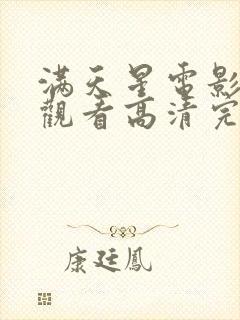 滿天星電影
觀看高清完
康廷鳳